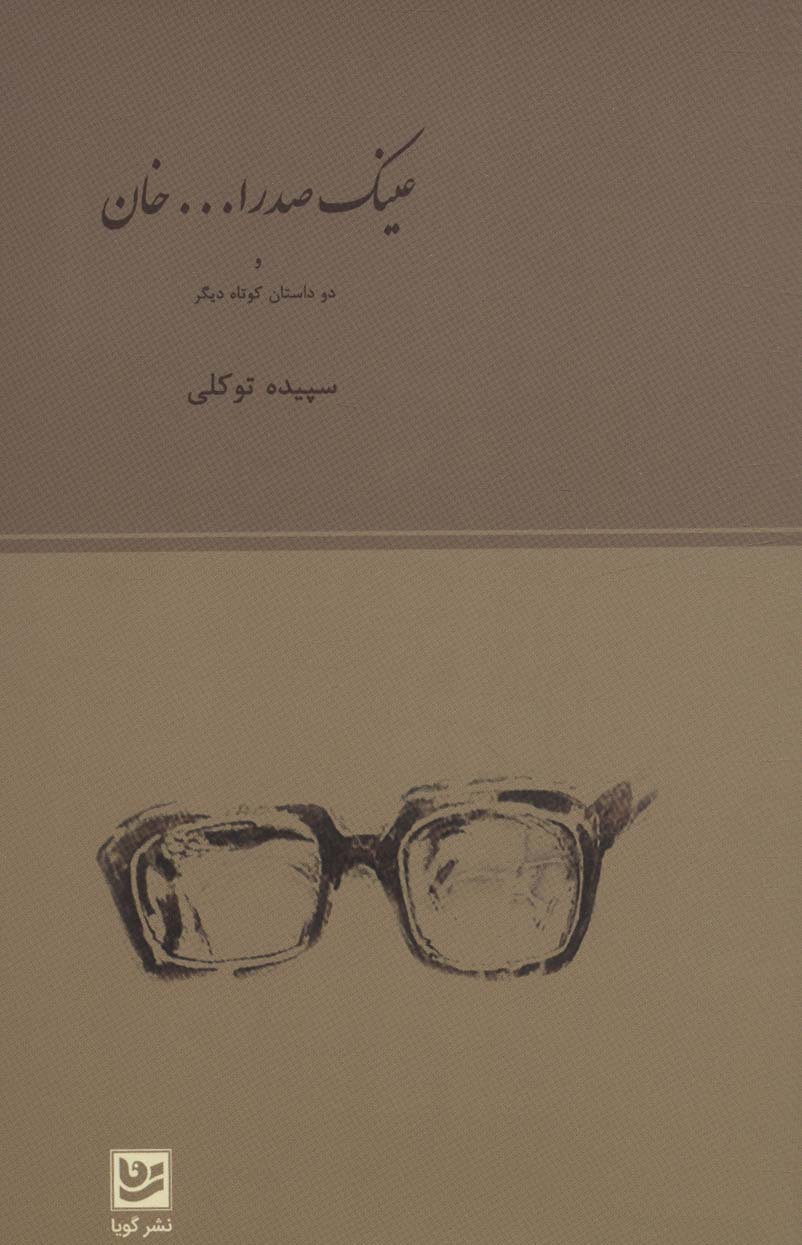 عینک صدرا...خان
و
دو داستان کوتاه دیگر
سپیده توکلی
نشر گویا